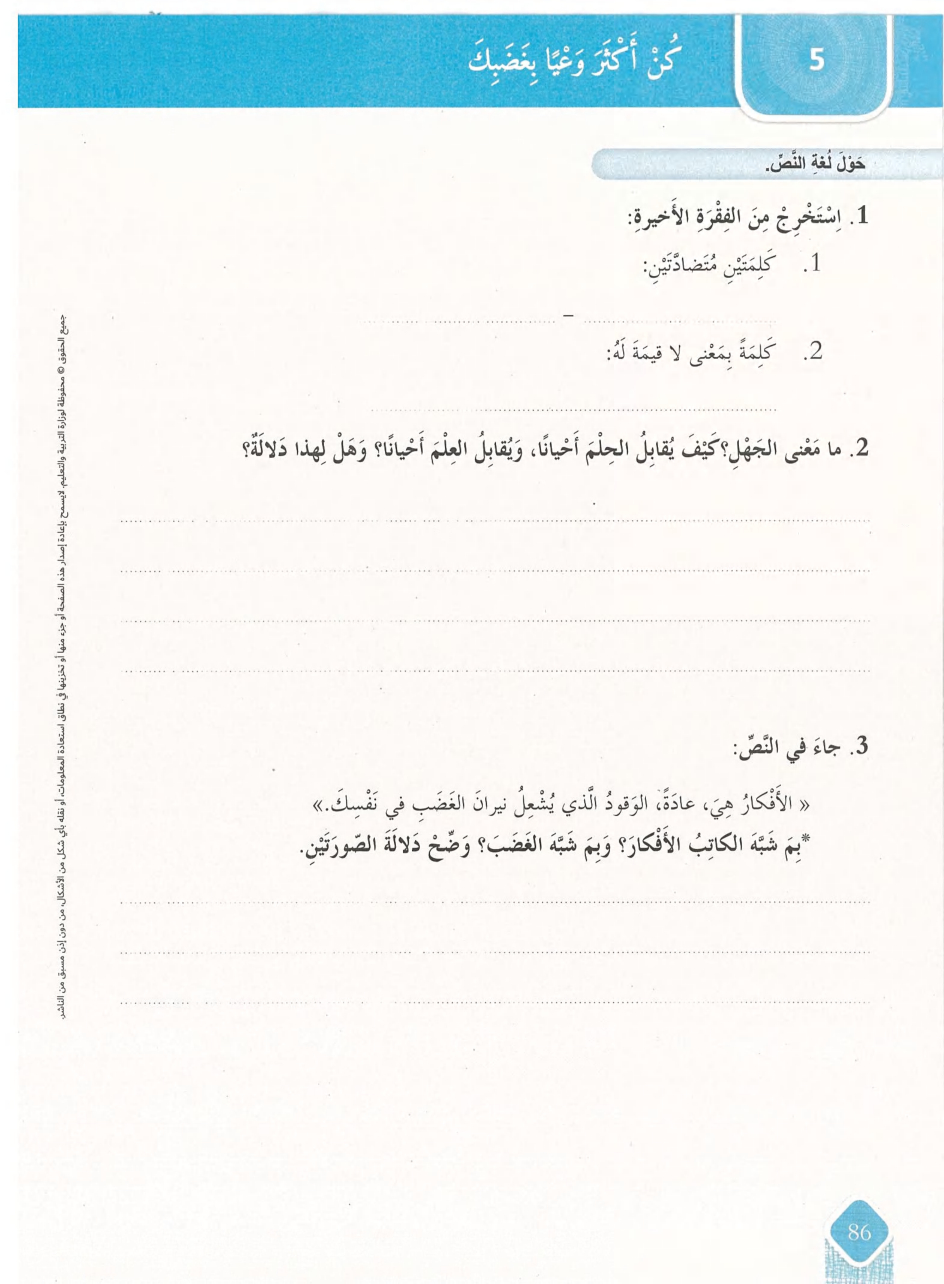 5
كُنْ أَكْثَرَ وَعْيًا بِغَضَبِكَ
حَوْلَ لُغَةِ النَّصِّ.
1. اِسْتَخْرِجْ مِنَ الفِقْرَةِ الأَخيرةِ:
1. كَلِمَتَيْنِ مُتَضادَّتَيْنِ:
–
2. كَلِمَةً بِمَعْنى لا قيمَةَ لَهُ:
2. ما مَعْنى الجَهْلِ؟كَيْفَ يُقابِلُ الحِلْمَ أَحْيانًا، وَيُقابِلُ العِلْمَ أَحْيانًا؟ وَهَلْ لِهذا دَلالَةٌ؟
3. جاءَ في النَّصِّ:
« الأَفْكارُ هِيَ، عادَةً، الوَقودُ الَّذي يُشْعِلُ نيرانَ الغَضَبِ في نَفْسِكَ.»
*بِمَ شَبَّهَ الكاتِبُ الأَفْكارَ؟ وَبِمَ شَبَّهَ الغَضَبَ؟ وَضِّحْ دَلالَةَ الصّورَتَيْنِ.
جميع الحقوق © محفوظة لوزارة التربية والتعليم. لايسمح بإعادة إصدار هذه الصفحة أو جزء منها أو تخزينها في نطاق استعادة المعلومات، أو نقله بأي شكل من الأشكال، من دون إذن مسبق من الناشر.
86